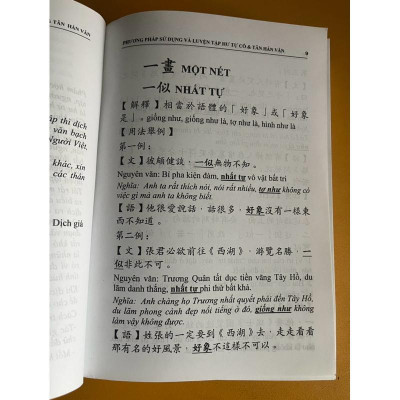 & TÂN HÁN VĂN
ập thì dịch
văn bạch
Người Việt.
khác, xin
các thán
Dịch giả
PHƯƠNG PHÁP SỬ DỤNG VÀ LUYỆN TẬP HƯ TỰ CỔ & TÂN HÁN VĂN 9
一畫 MỘT NÉT
一似 NHẤT TỰ
【解釋】相當於語體的「好象」或「好象
是」, giống như, giống như là, tợ như là, hình như là
【用法舉例】
第一例：
【文】披頗健談，一似無物不知。
Nguyên văn: Bỉ pha kiện đàm, nhất tự vô vật bất tri
Nghĩa: Anh ta rất thích nói, nói rất nhiều, tợ như không có
việc gì mà anh ta không biết.
【語】他很愛說話，話很多，好象沒有一樣東
西不知道。
第二例：
【文】張君必欲前往《西湖》，游覽名勝，一
似非此不可。
Nguyên văn: Trương Quân tất dục tiền vãng Tây Hồ, du
lãm danh thắng, nhất tự phi thử bất khả.
Nghĩa: Anh chàng họ Trương nhất quyết phải đến Tây Hồ,
du lãm phong cảnh đẹp nổi tiếng ở đó, giống như không
làm vậy không được.
【語】姓張的一定要到《西湖》去，走走看看
那有名的好風景，好象不這樣不可以。